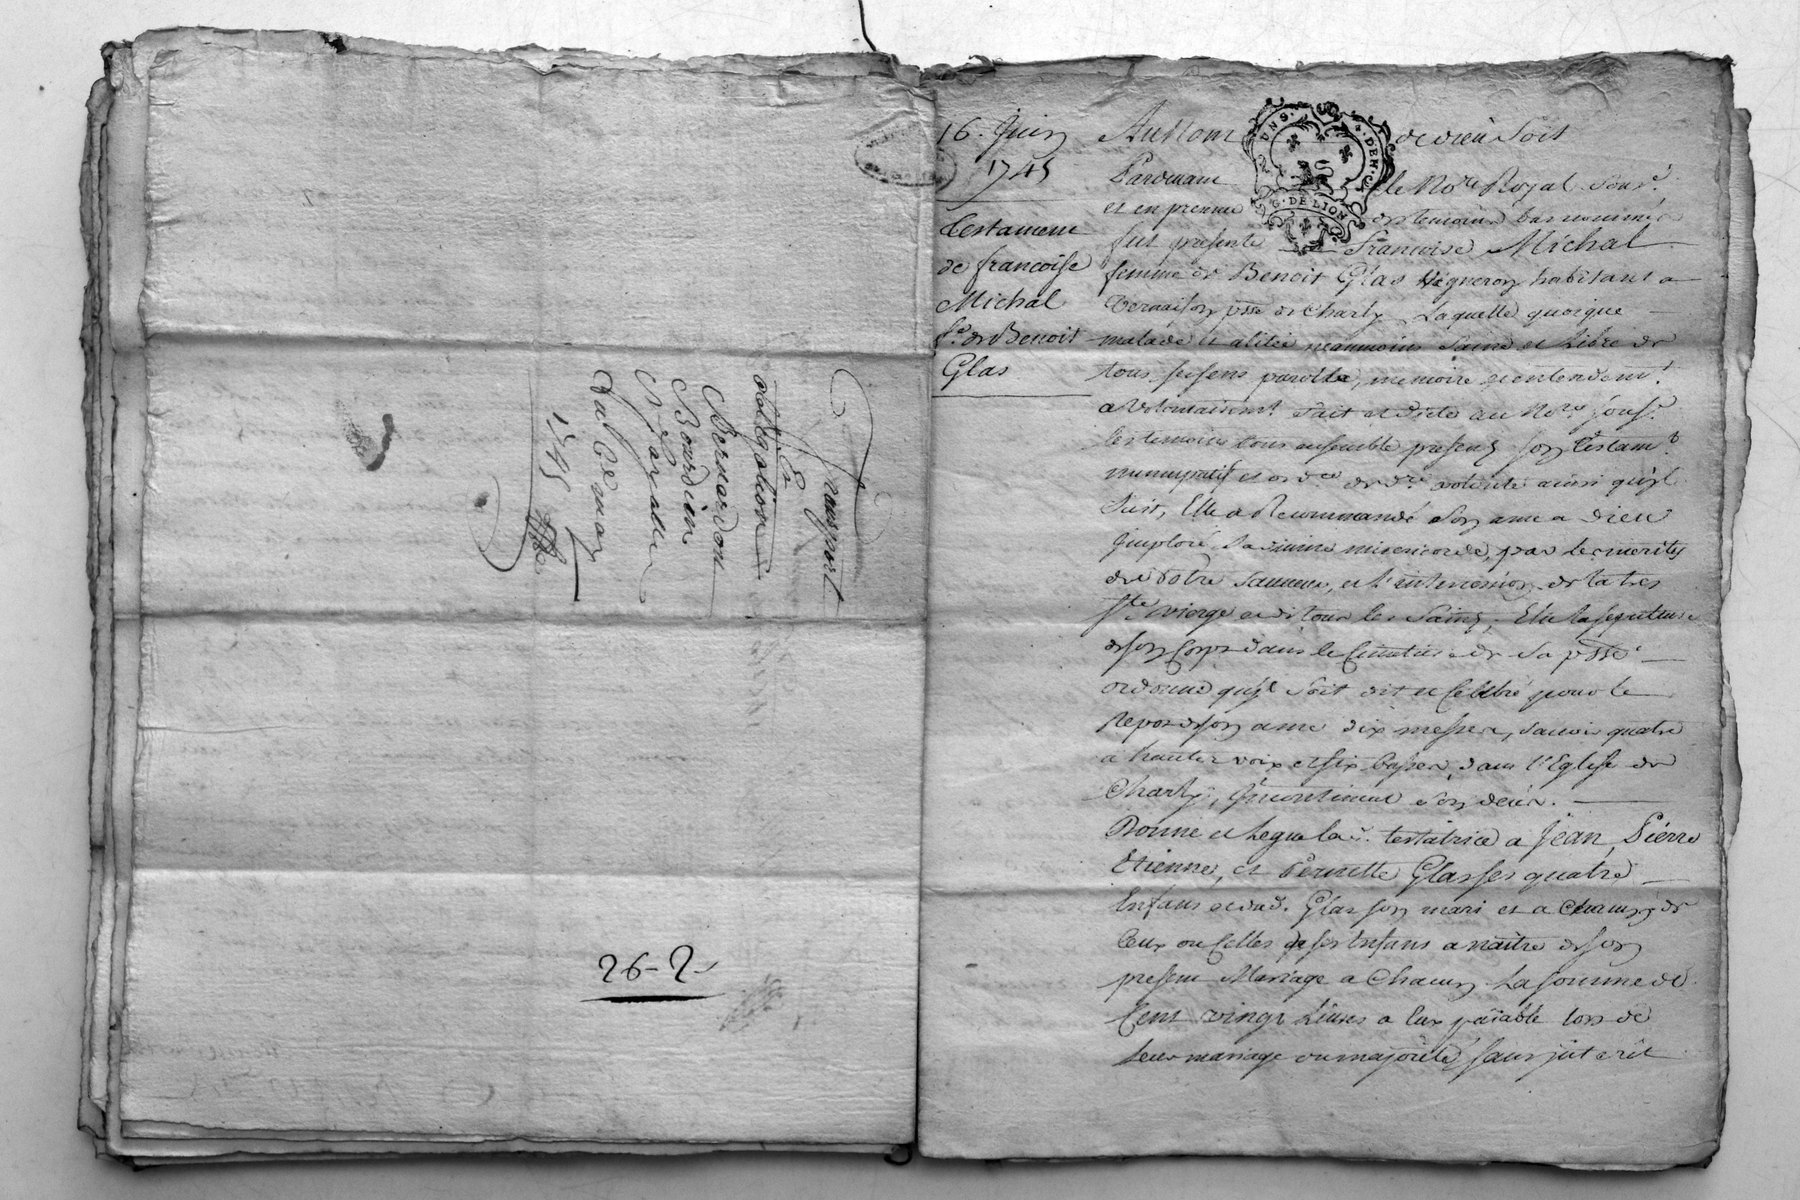 Transport
&
obligation
Bernardon
Bourdin
1745
26-2
16. Juin
1745
Testament
de francoise
Michal
fe. de Benoit
Glas
UNS. 4. DEN.
G. DE LION
Au Nom de dieu Soit
Pardevant le Nore. Royal Sousé.
et en presence des temoins bas nommés
fut presente francoise Michal
femme de Benoit Glas Vigneron habitant a
Vernaison psse de Charly Laquelle quoique
malade et alitée neanmoins Saine et Libre de
tous ses sens parolle, memoire et entendemt.
a volontairemt fait et dicté au Nore. sousé.
les temoins tous ensemble presens son Testamt.
nuncupatif et ordce de dre volonté ainsi qu'jl
Suit, Elle a Recommandé Son ame a Dieu
Jmploré Sa divine misericorde, par les merites
de Notre Sauveur, et l'intercession de la tres
Ste. vierge et de tous les Saints, Elu la sepulture
de son Corps dans le Cimetiere de Sa psse
ordonne qu'jl Soit dit et Celebré pour le
Repos de son ame dix messes, Sauoir quatre
a hautes voix et six basses, dans l'Eglise de
Charly, Jncontinent Son deces.
Donne et Legue lad. testatrice a Jean, Pierre
Etienne, et Pernette Glas ses quatre
Enfans et dud. Glas son mari et a Chacun de
Ceux ou Celles de ses Enfans a naitre de son
present Mariage a Chacun La somme de
Cent vingt Livres a Eux païable lors de
leur mariage ou majorité, sans jnterêt